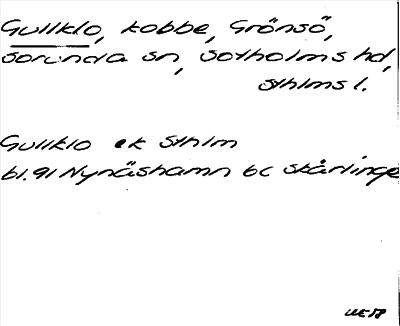 Gullklo, kobbe, Grönsö,
Sorunda sn, Sotholms hd,
Sthlms l.
Gullklo ek Sthlm
bl. 91 Nynäshamn bc Skårlinge